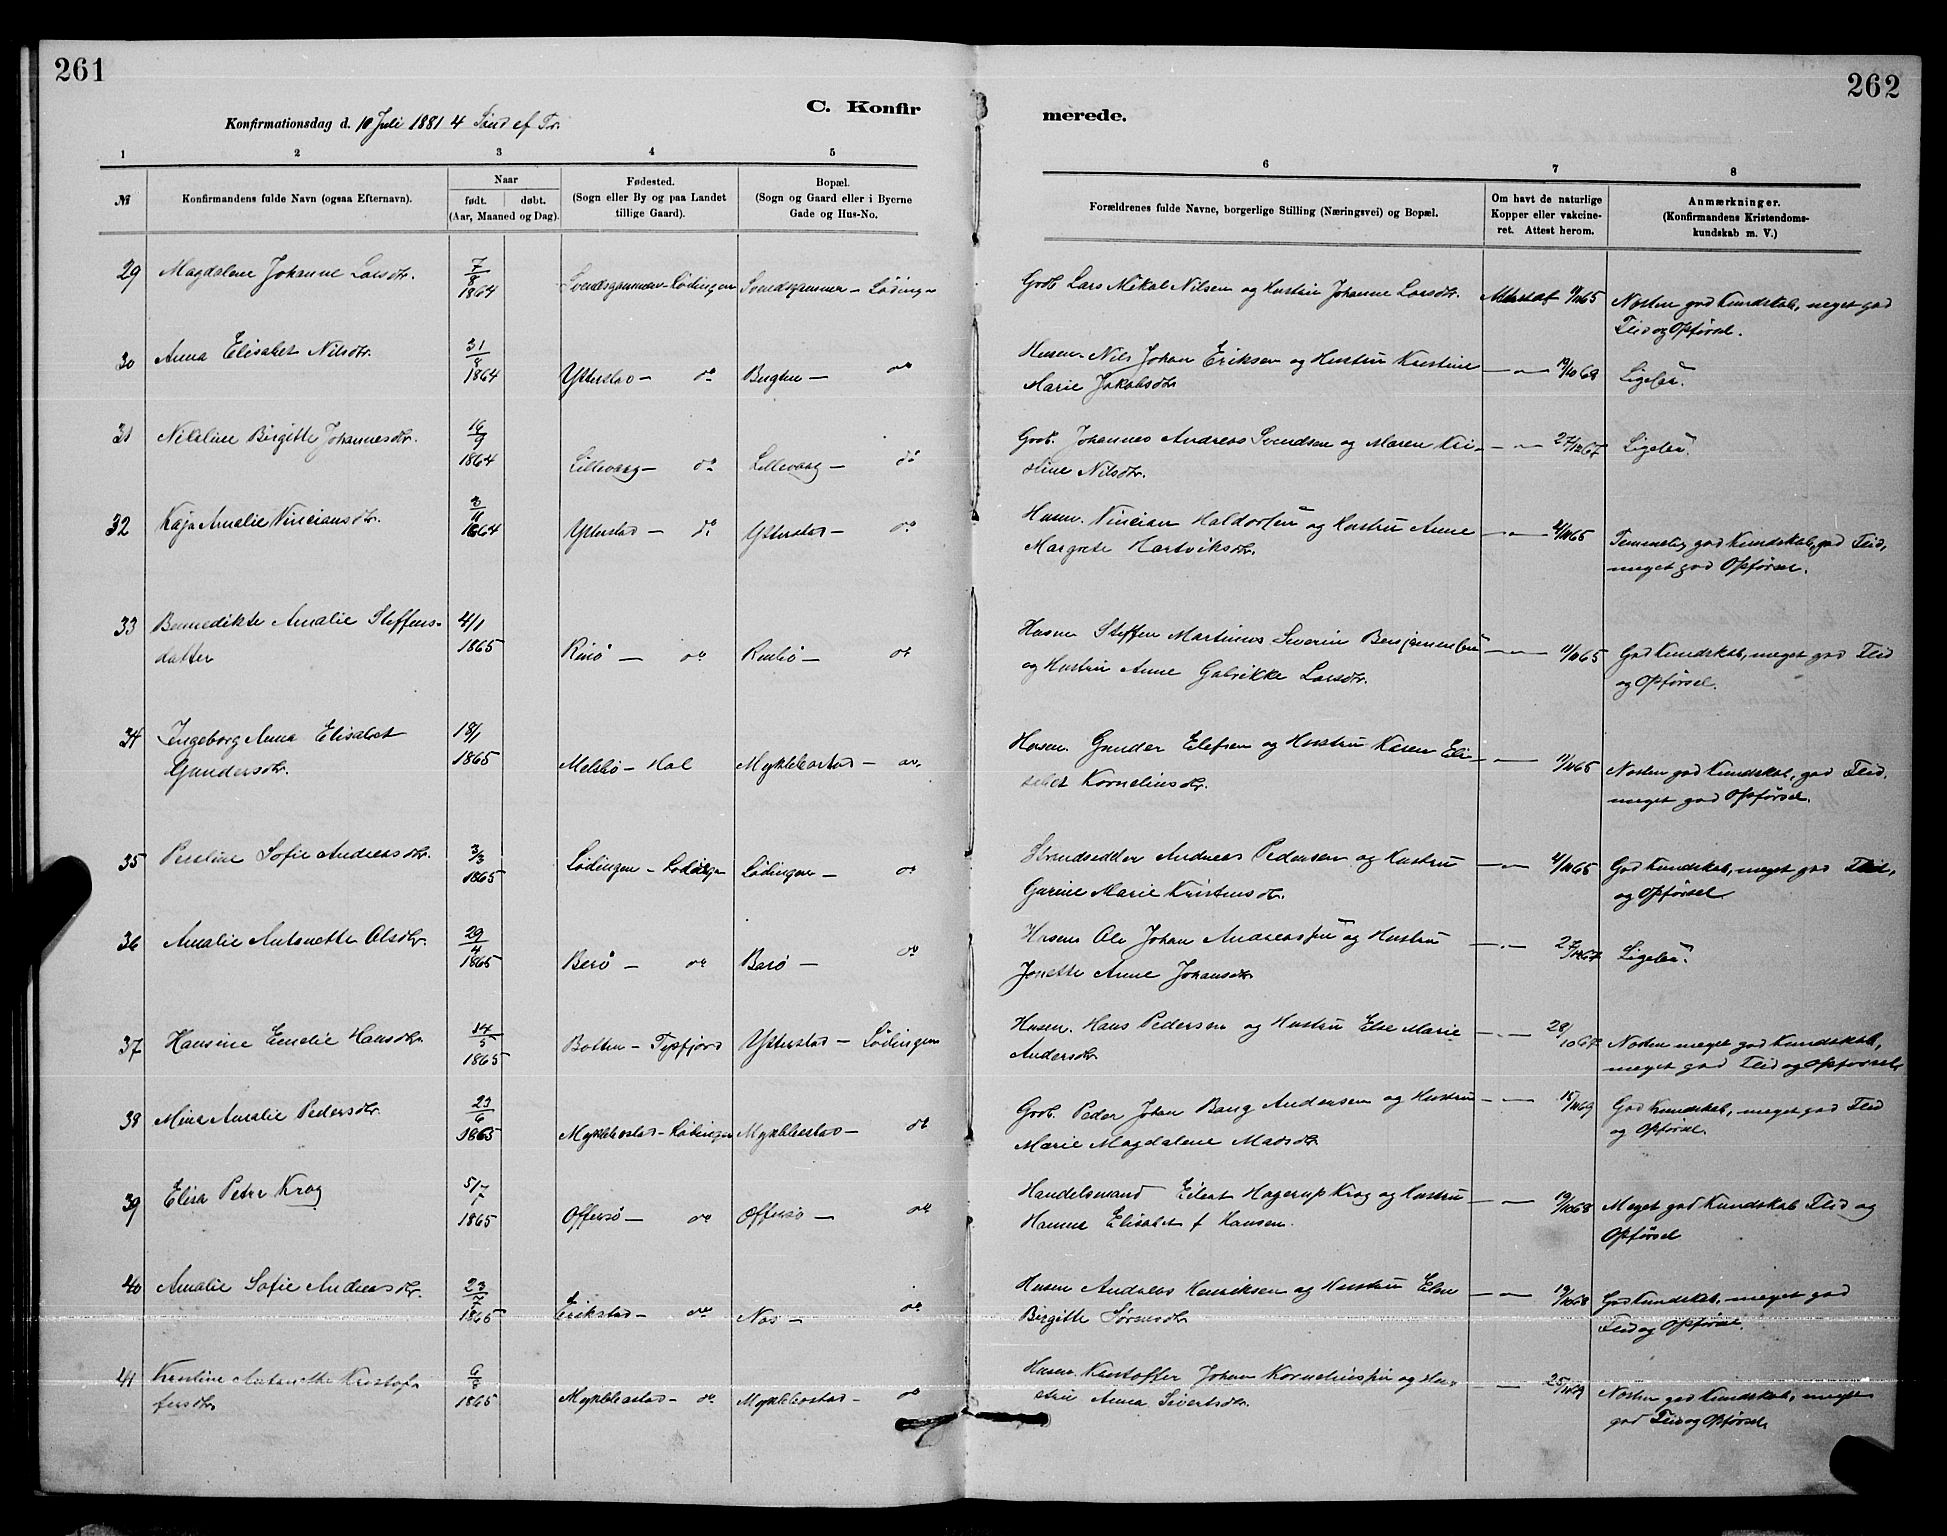 261
262
C. Konfir
merede.
Konfirmationsdag d. 10 Juli 1881 4 Sønd ef Tr.
1 2 3 4 5
6 7 8
№
Konfirmandens fulde Navn (ogsaa Efternavn).
Naar
født. døbt.
(Aar, Maaned og Dag).
Fødested.
(Sogn eller By og paa Landet
tillige Gaard).
Bopæl.
(Sogn og Gaard eller i Byerne
Gade og Hus-No.
Forældrenes fulde Navne, borgerlige Stilling (Næringsvei) og Bopæl.
Om havt de naturlige
Kopper eller vakcine-
ret. Attest herom.
Anmærkninger.
(Konfirmandens Kristendoms-
kundskab m. V.)
29 Magdalene Johanne Larsdtr. 7/8 1864 Svendsgammen - Lødingen Svendsgammen - Lødingen
Grdb. Lars Mikal Nilsen og Hustru Johanne Larsdtr. 65 Næsten god Kundskab, meget god
Flid og Opførsel.
30 Anna Elisabet Nilsdtr. 31/8 1864 Ytterstad - do Bugten - do
Husm. Nils Johan Eriksen og Hustru Kristine
Marie Jakobsdtr - " - 19/10 69 Ligesaa.
31 Nikoline Birgitte Johannesdtr. 16/9 1864 Lillevaag - do Lillevaag - do
Grdb. Johannes Andreas Svendsen og Maren Kri-
stine Nilsdtr. - " - 67 Ligesaa.
32 Kaja Amalie Vinciansdtr. 3/11 1864 Ytterstad - do Ytterstad - do
Husm. Vincian Haldorsen og Hustru Anne
Margrete Hartviksdtr. - " - 65 Temmelig god Kundskab, god Flid,
meget god Opførsel.
33 Bennedikte Amalie Steffens-
datter 4/1 1865 Rinø - do Rinø - do
Husm Steffen Martinus Severin Benjaminsen
og Hustru Anne Gabrikke Larsdtr. - " - 65 God Kundskab, meget god Flid
og Opførsel.
34 Ingeborg Anna Elisabet
Gundersdtr. 18/1 1865 Melsbø - Hol Mykklebostad - do
Husm. Gunder Elefsen og Hustru Karen Eli-
sabet Kornelinsdtr. - " - 65 Næsten god Kundskab, god Flid,
meget god Opførsel.
35 Petrline Sofie Andreasdtr. 3/3 1865 Lødingen - Lødingen Lødingen - do
Strandsidder Andreas Pedersen og Hustru
Gurine Marie Kristensdtr. - " - 65 God Kundskab, meget god Flid,
og Opførsel
36 Amalie Antonette Olsdtr. 29/4 1865 Barø - do Barø - do
Husm Ole Johan Andreassen og Hustru
Jonette Anne Johansdtr - " - 67 Ligesaa.
37 Hansine Emelie Hansdtr. 14/5 1865 Botten - Tysfjord Ytterstad - Lødingen
Husm. Hans Pedersen og Hustru Else Marie
Andersdtr - " - 28/10 67 Næsten meget god Kundskab,
meget god Flid og Opførsel.
38 Mina Amalie Pedersdtr. 23/6 1865 Mykklebostad - Lødingen Mykklebostad - do
Grdb. Peder Johan Bang Andersen og Hustru
Marie Magdalene Madsdtr - " - 69 God Kundskab, meget god Flid
og Opførsel.
39 Elisa Petra Krog 5/7 1865 Offersø - do Offersø - do
Handelsmand Eilert Hagerup Krog og Hustru
Hanna Elisabet f Hansen. - " - 19/10 68 Meget god Kundskab Flid og
Opførsel
40 Amalie Sofie Andreasdtr. 23/7 1865 Erikstad - do Nes - do
Husm Andreas Henriksen og Hustru Elen
Birgitte Sørensdtr - " - 19/10 68 God Kundskab, meget god
Flid og Opførsel.
41 Karoline Antonette Kristof-
fersdtr 6/8 1865 Mykklebostad - do Mykklebostad - do
Husm Kristoffer Johan Korneliussen og Hu-
stru Anna Sivertsdtr. - " - 69 Næsten god Kundskab, meget
god Flid og Opførsel.